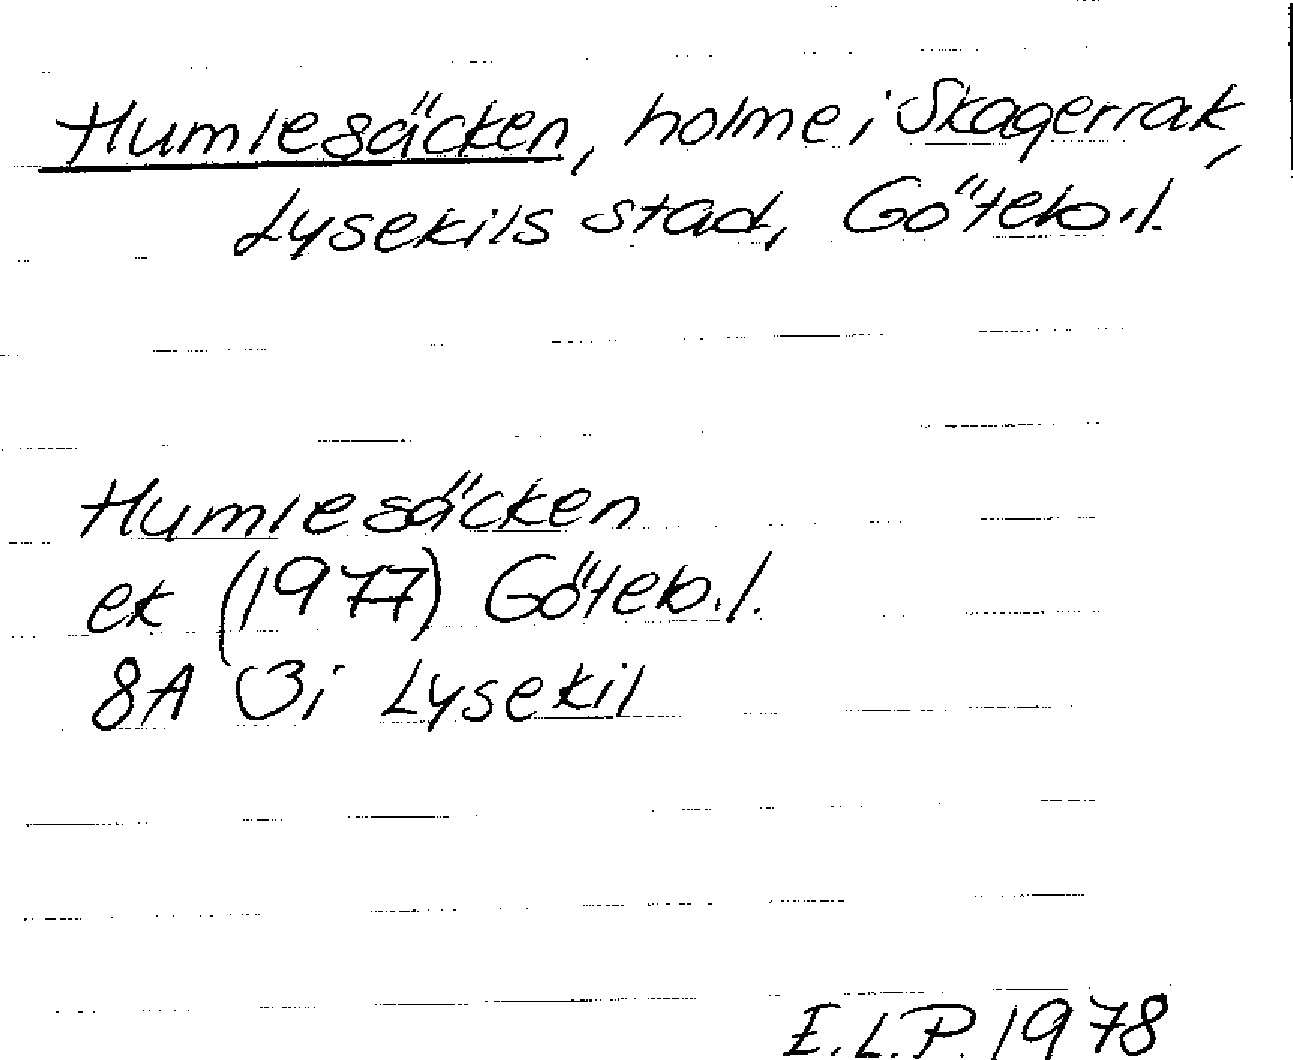 Humlesäcken, holme i Skagerrak,
Lysekils stad, Göteb.l.
Humlesäcken
ek (1977) Göteb.l.
8A 3i Lysekil
E.L.P. 1978